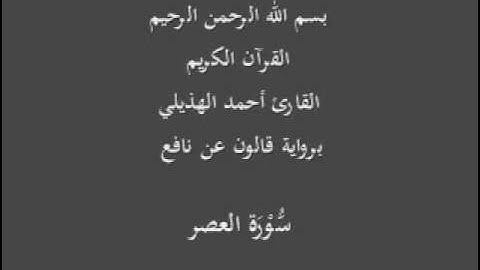 بسم الله الرحمن الرحيم
القرآن الكريم
القارئ أحمد الهذيلي
برواية قالون عن نافع
سُّوْرَة العصر